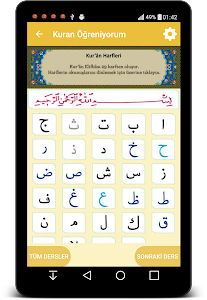 49% 01:42
Kuran Öğreniyorum
Kur'ân Harfleri
Kur'ân Elifbâsı 29 harften oluşur.
Harflerin okunuşlarını dinlemek için üzerine tıklayın.
بِسْمِ اللّٰهِ الرَّحْمٰنِ الرَّحِيمِ
ا ب ت ث ج
ح خ د ذ ر
ز س ش ص ض
ط ظ ع غ ف
ق ك ل م ن
TÜM DERSLER
SONRAKİ DERS